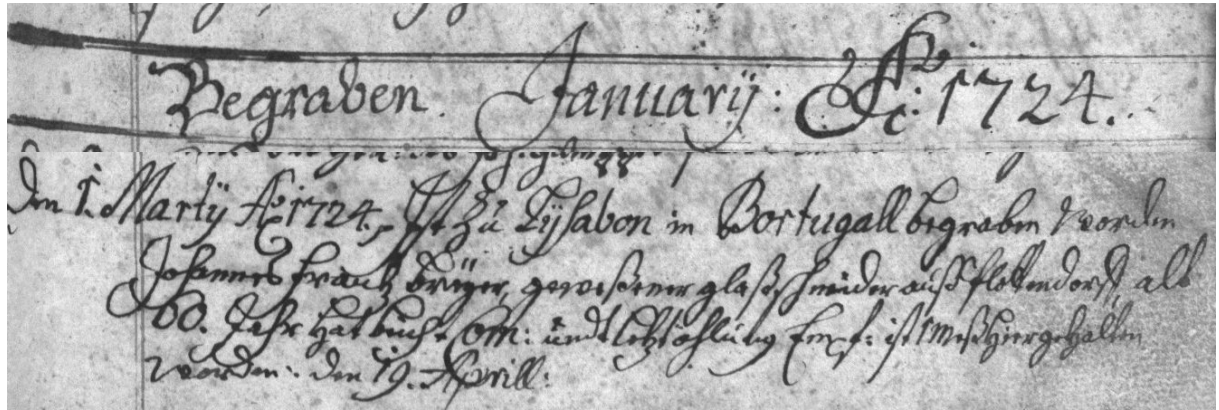 Begraben. January: Ao: 1724.
Den 1. Marty Ao 1724. Ist zu Lysabon in Bortugall begraben worden
Johannes Frantz Kriger, geweßener glaßschneider auß Flottendorff, alt
60. Jahr hat beicht Com: undt letzt öhlung Empf: ist 1 Meß hier gehalten
worden: den 19. Aprill: